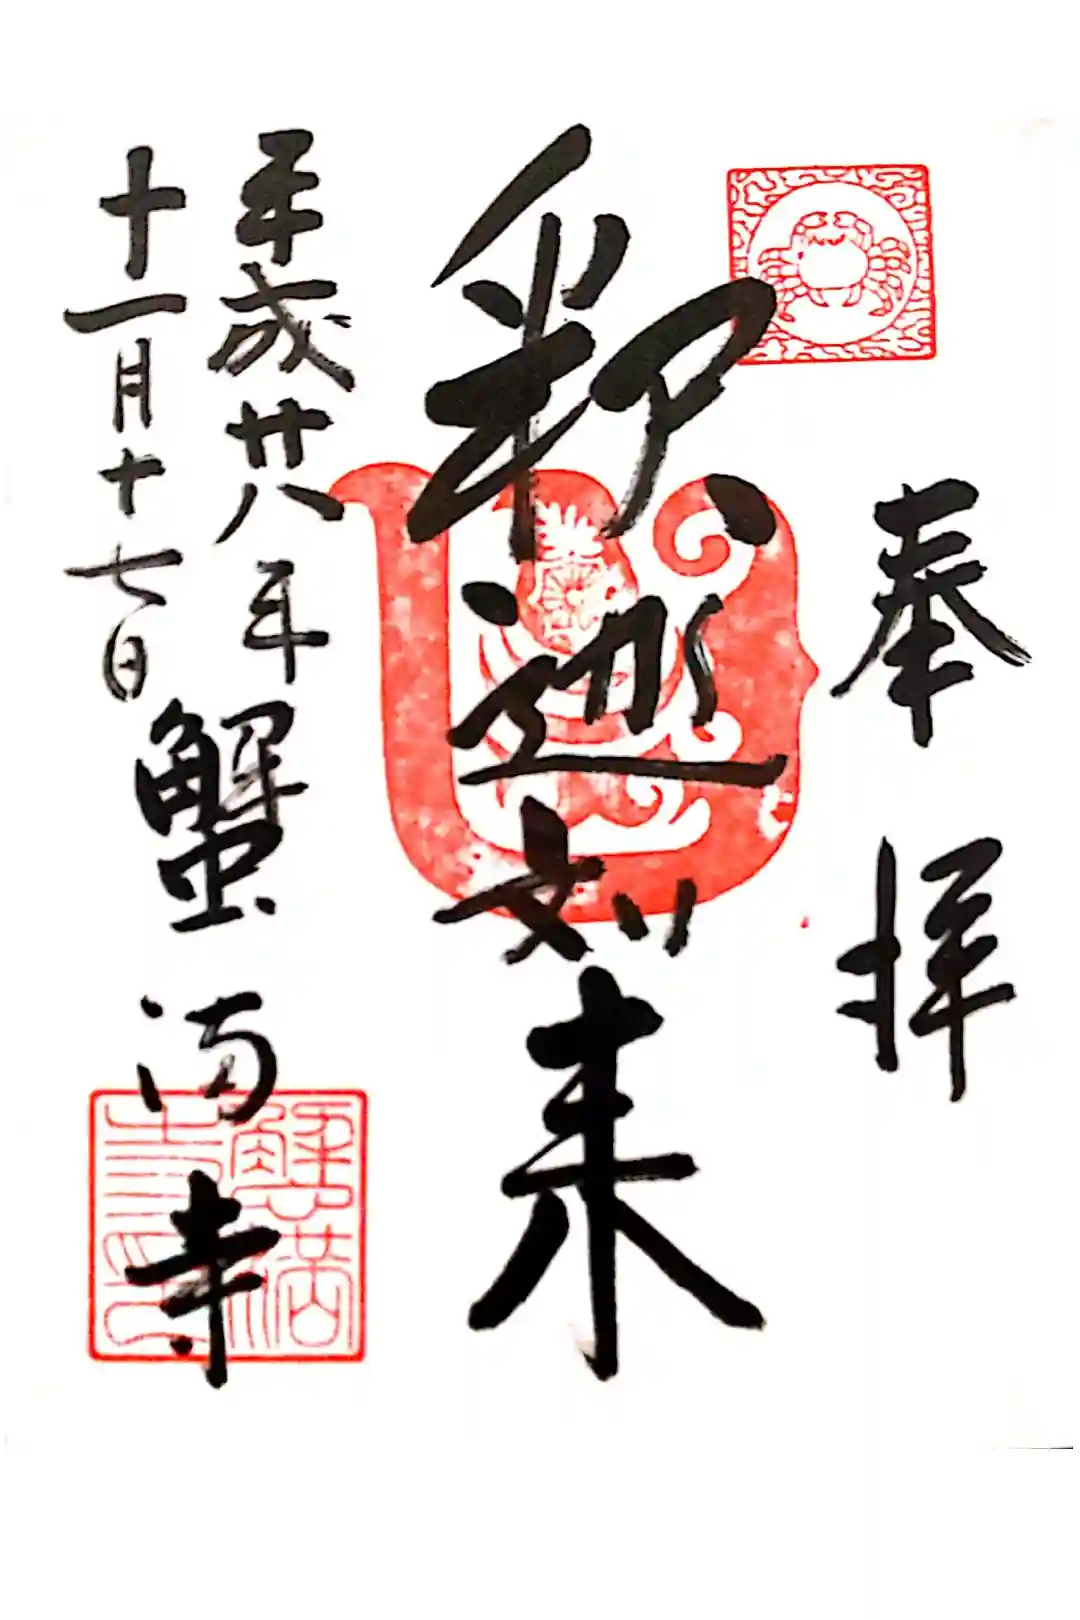 奉拝
釈迦如来
平成廿八年
十一月十七日
蟹満寺
蟹満
寺印